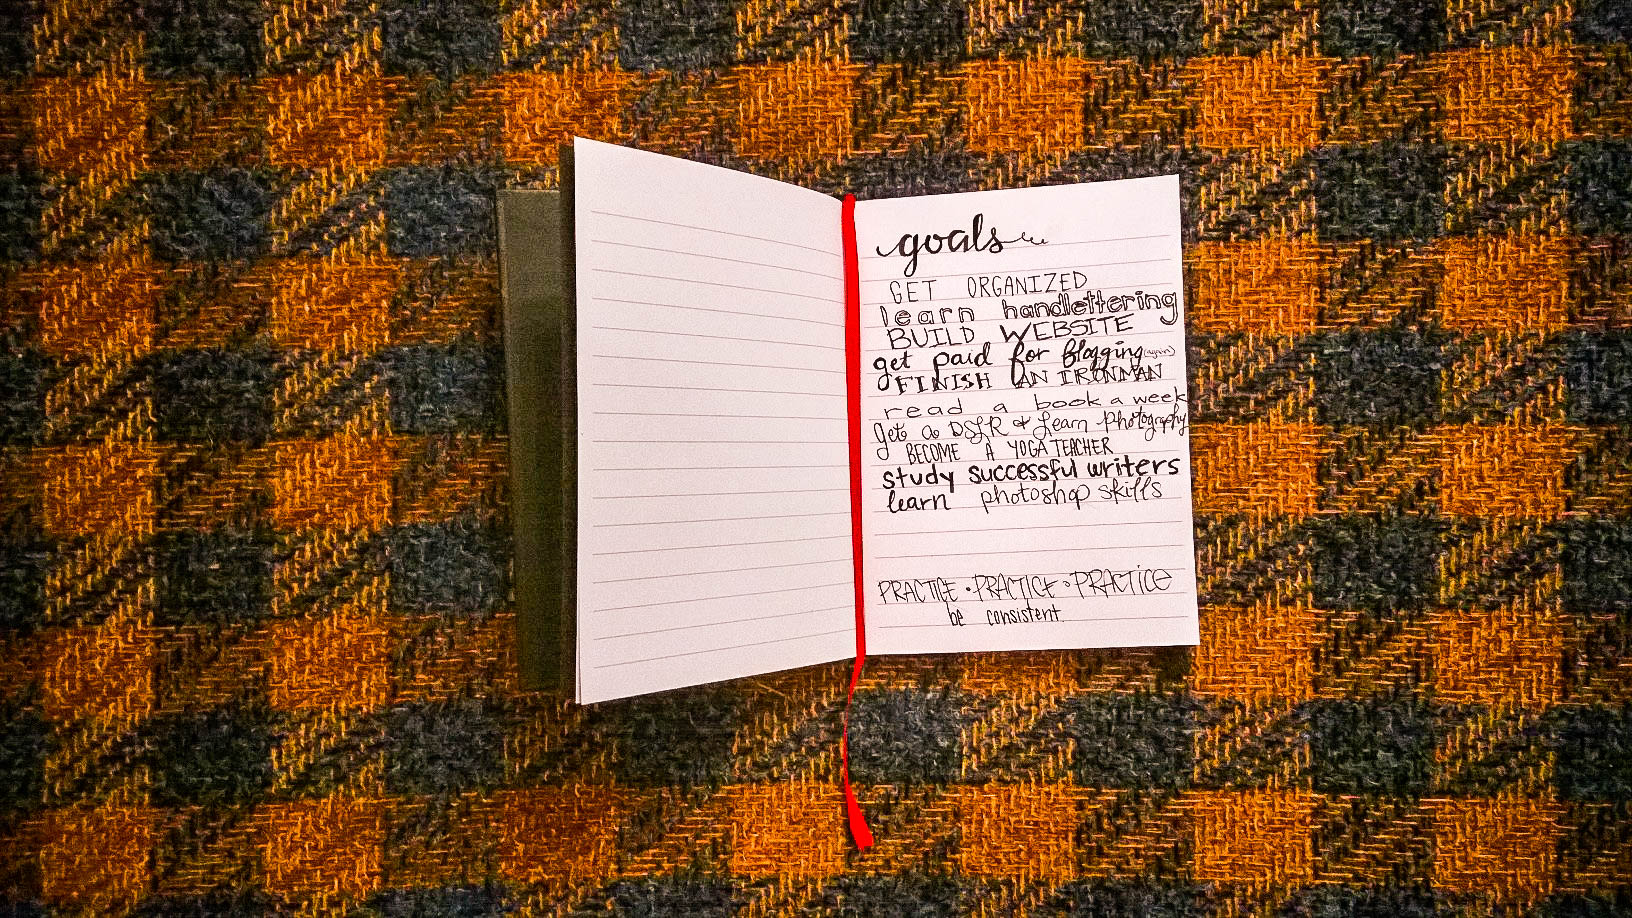 goals
GET ORGANIZED
learn handlettering
BUILD WEBSITE
get paid for blogging (again)
FINISH AN IRONMAN
read a book a week
get a DSLR & learn photography
BECOME A YOGA TEACHER
study successful writers
learn photoshop skills
PRACTICE · PRACTICE · PRACTICE
be consistent.